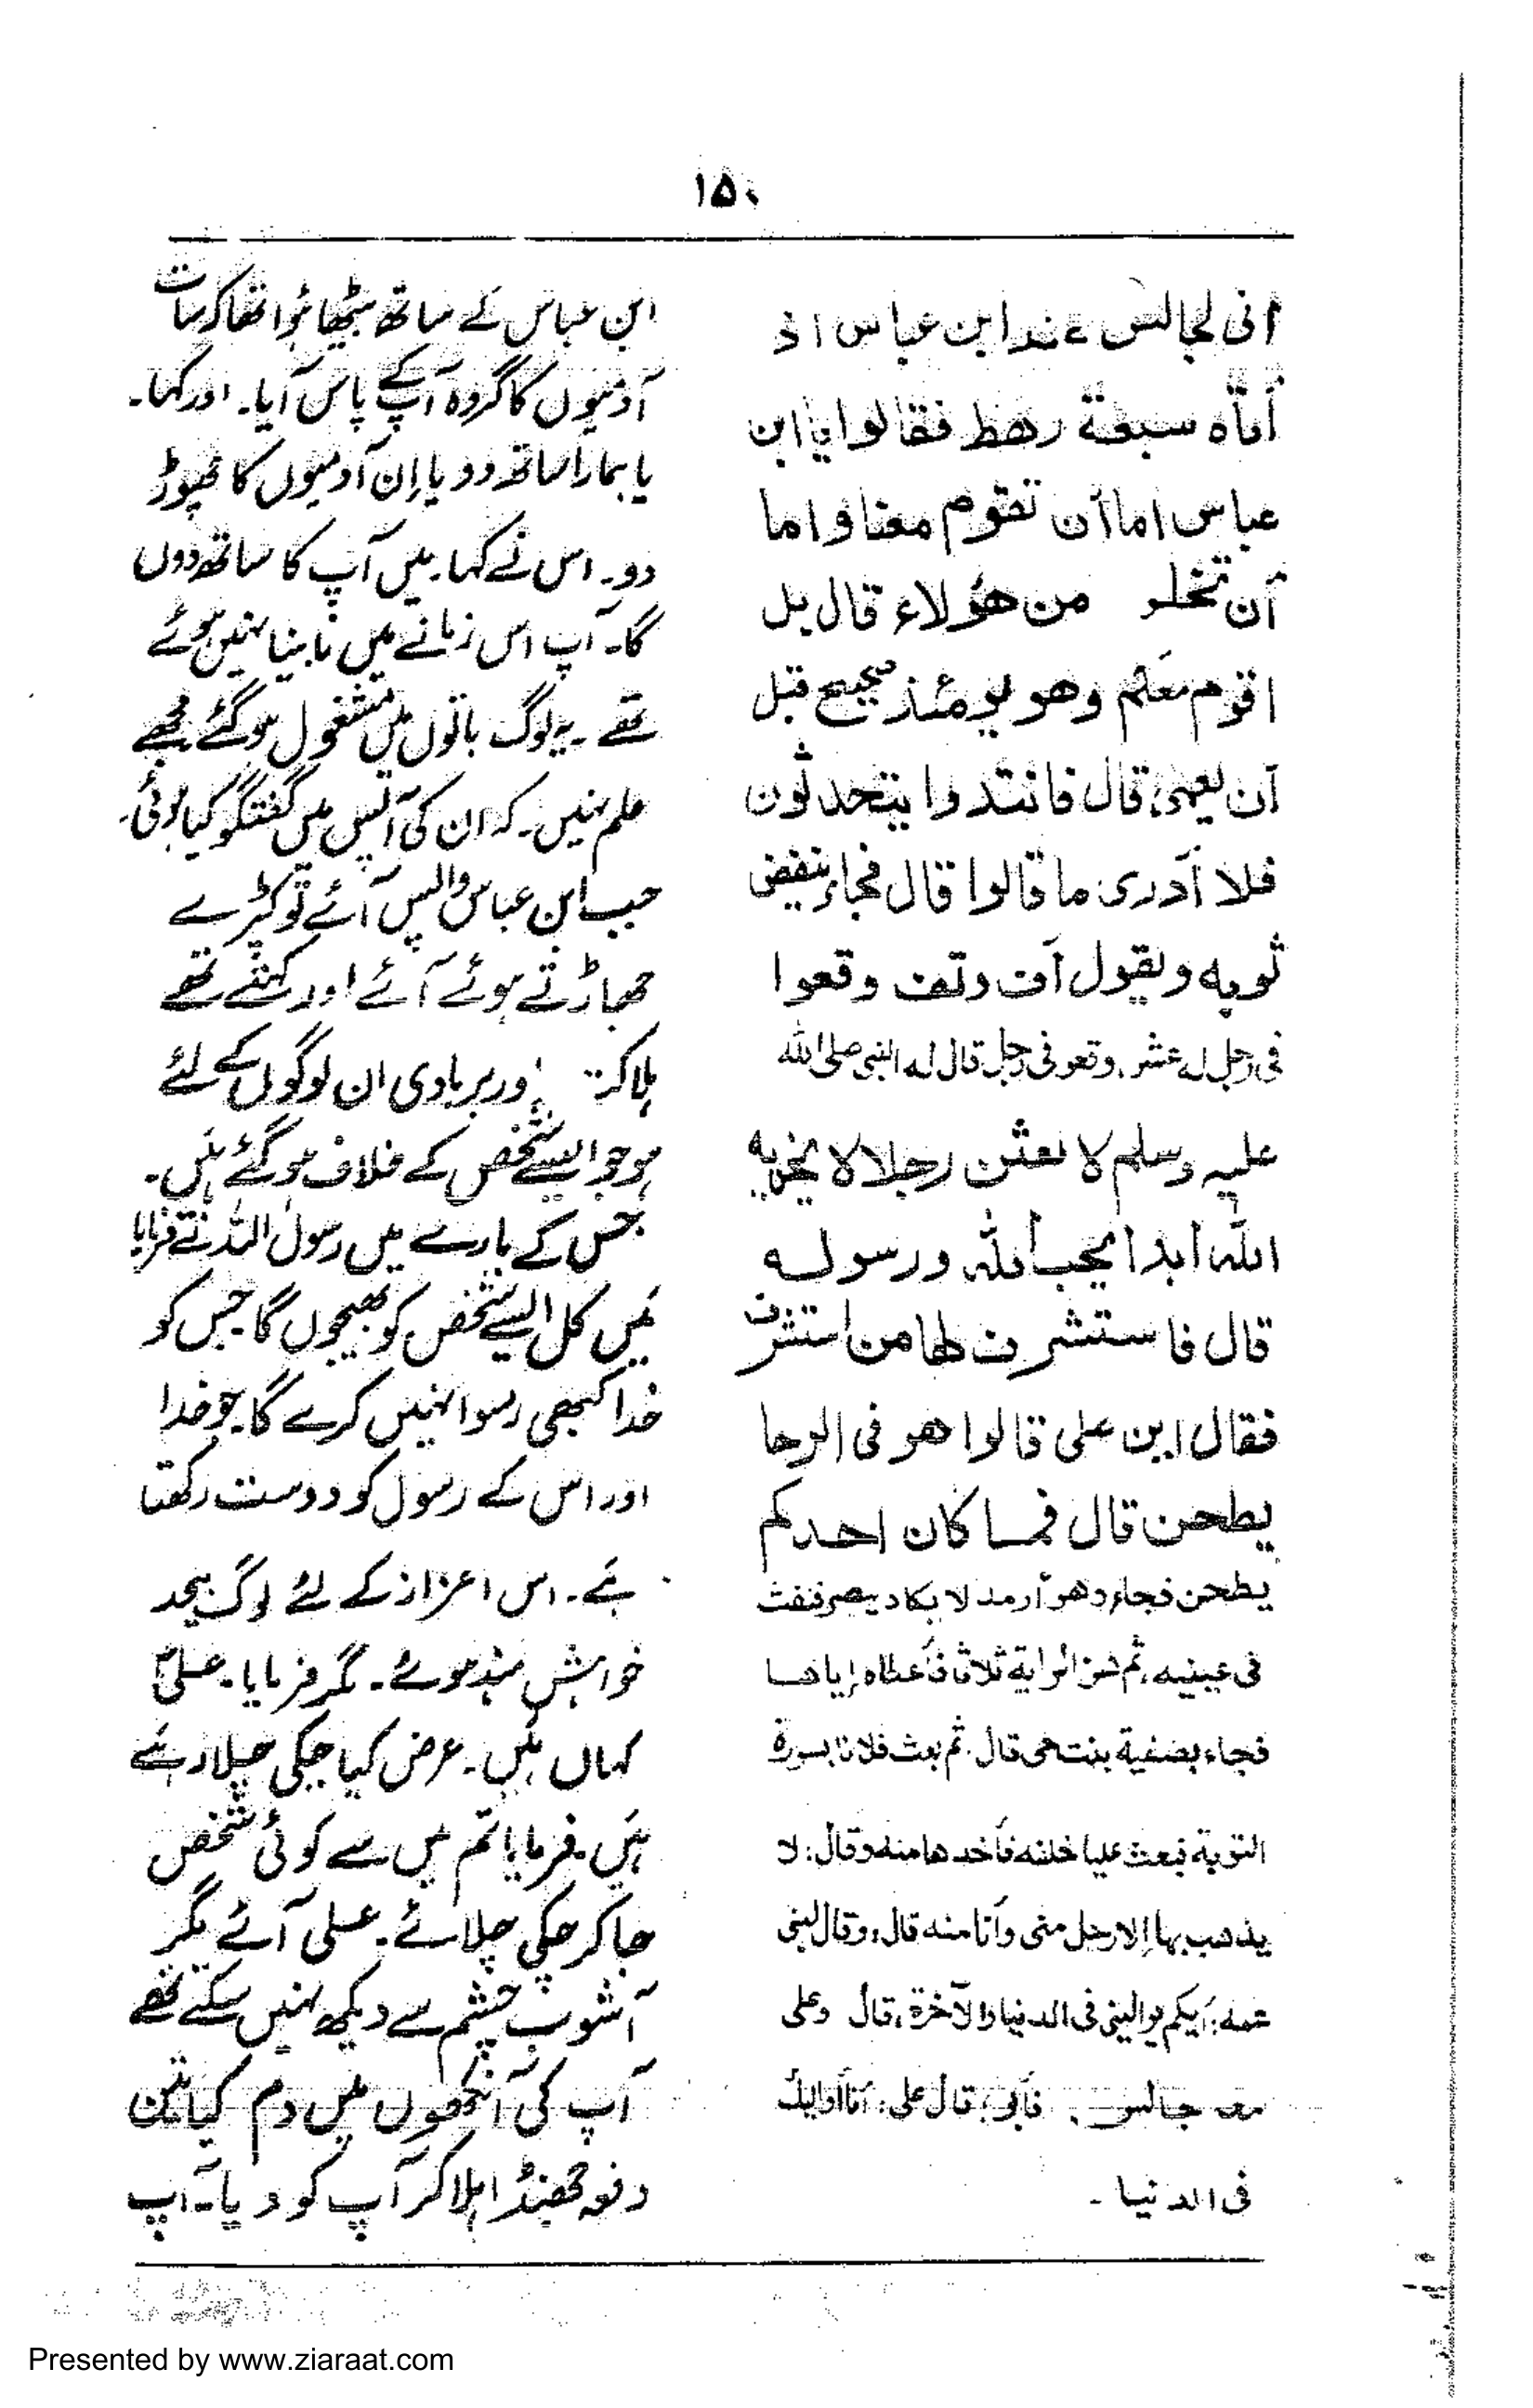 ۱۵۰
انی لجالس عند ابن عباس اذ
أتاه سبعة رهط فقالوا يا ابن
عباس اما أن تقوم معنا واما
أن تخلو من هؤلاء قال بل
اقوم معكم وهو يومئذ صحيح قبل
أن يعمى، قال فانتدوا يتحدثون
فلا أدری ما قالوا قال فجاء ينفض
ثوبه ويقول أف وتف وقعوا
فی رجل له عشر، وقعو فی رجل قال له النبی صلی الله
عليه وسلم لا بعثن رجلا لا يخزيه
الله أبدا يحب الله ورسوله
قال فاستشرف لها من استشرف
فقال اين علی قالوا هو فی الرحا
يطحن قال فما كان احدكم
يطحن فجاء وهو أرمد لا يكاد يبصر فنفث
فی عينيه، ثم هز الراية ثلاثا فأعطاه إياها
فجاء بصفية بنت حی قال. ثم بعث فلانا بسورة
التوبة فبعث عليا خلفه فأخدها منه وقال: لا
يذهب بها إلا رجل منی وأنا منه قال، وقال لبنی
عمه: أيكم يوالينی فی الدنيا والآخرة، قال وعلی
معه جالس. فأبو، قال علی: أنا أواليك
فی الدنيا۔
ابن عباس کے ساتھ بیٹھا ہؤا تھا کہ سات
آدمیوں کا گروہ آپ کے پاس آیا۔ اور کہا۔
یا ہمارا ساتھ دو یا اِن آدمیوں کا چھوڑ
دو۔ اس نے کہا۔ میں آپ کا ساتھ دوں
گا۔ آپ اس زمانے میں نابینا نہیں ہوئے
تھے۔ یہ لوگ باتوں میں مشغول ہو گئے مجھے
علم نہیں۔ کہ ان کی آپس میں گفتگو کیا ہوئی۔
جب ابن عباس واپس آئے تو کپڑے
جھاڑتے ہوئے آئے اور کہتے تھے
ہلاکت اور بربادی ان لوگوں کے لئے
ہو جو ایسے شخص کے خلاف ہو گئے ہیں۔
جس کے بارے میں رسول اللہ نے فرمایا
میں کل ایسے شخص کو بھیجوں گا جس کو
خدا کبھی رسوا نہیں کرے گا۔ جو خدا
اور اس کے رسول کو دوست رکھتا
ہے۔ اس اعزاز کے لئے لوگ بیحد
خواہش مند ہوئے۔ مگر فرمایا۔ علیؑ
کہاں ہیں۔ عرض کیا چکی چلا رہے
ہیں۔ فرمایا تم میں سے کوئی شخص
جا کر چکی چلائے۔ علی آئے مگر
آشوب چشم سے دیکھ نہیں سکتے تھے
آپ کی آنکھوں میں دم کیا تین
دفعہ جھنڈا ہلا کر آپ کو دیا۔ آپ
Presented by www.ziaraat.com